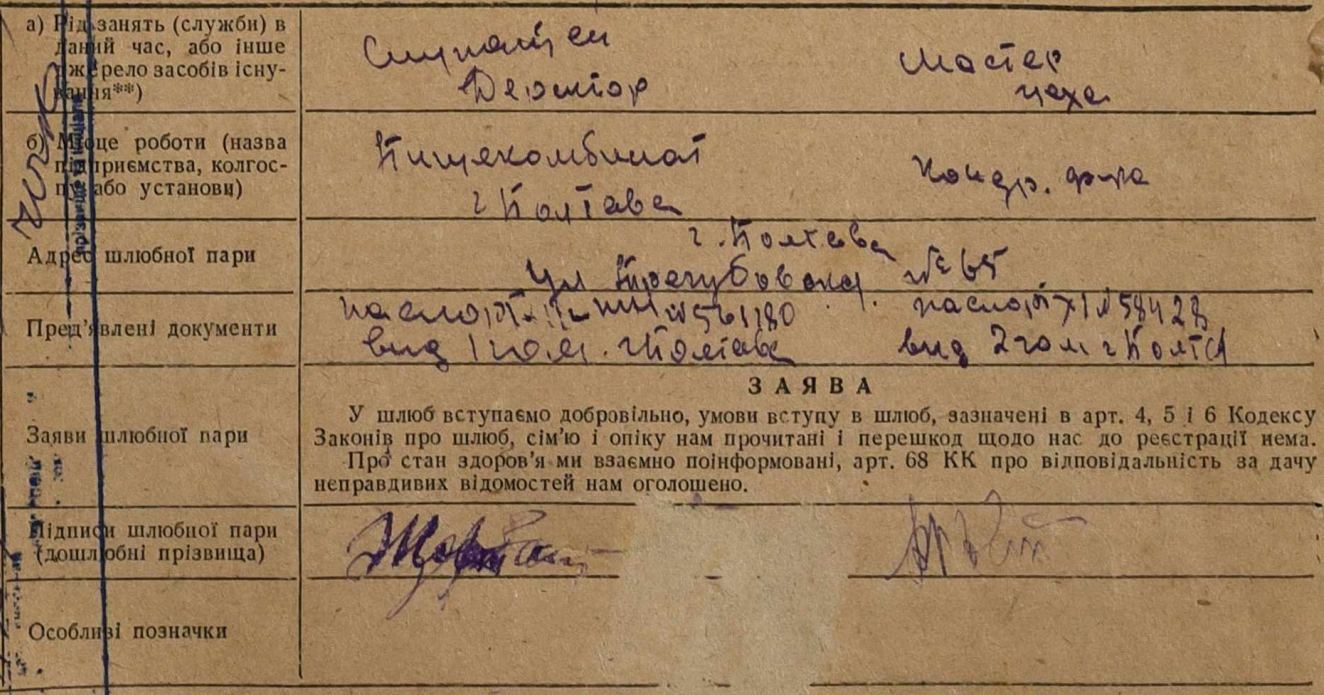 а) Рід занять (служби) в
даний час, або інше
джерело засобів існу-
вання**)
Мастер
цеха
б) Місце роботи (назва
підприємства, колгос-
пу або установи)
Пищекомбинат
г Полтава
Конд. ф-ка
Адрес шлюбної пари
г. Полтава
ул №65
Пред'явлені документи
паспорт №561180
паспорт XI №58428
вид 1 г Полтава
вид 2 г Полта
Заяви шлюбної пари
ЗАЯВА
У шлюб вступаємо добровільно, умови вступу в шлюб, зазначені в арт. 4, 5 і 6 Кодексу
Законів про шлюб, сім'ю і опіку нам прочитані і перешкод щодо нас до реєстрації нема.
Про стан здоров'я ми взаємно поінформовані, арт. 68 КК про відповідальність за дачу
неправдивих відомостей нам оголошено.
Підписи шлюбної пари
(дошлюбні прізвища)
Особливі позначки